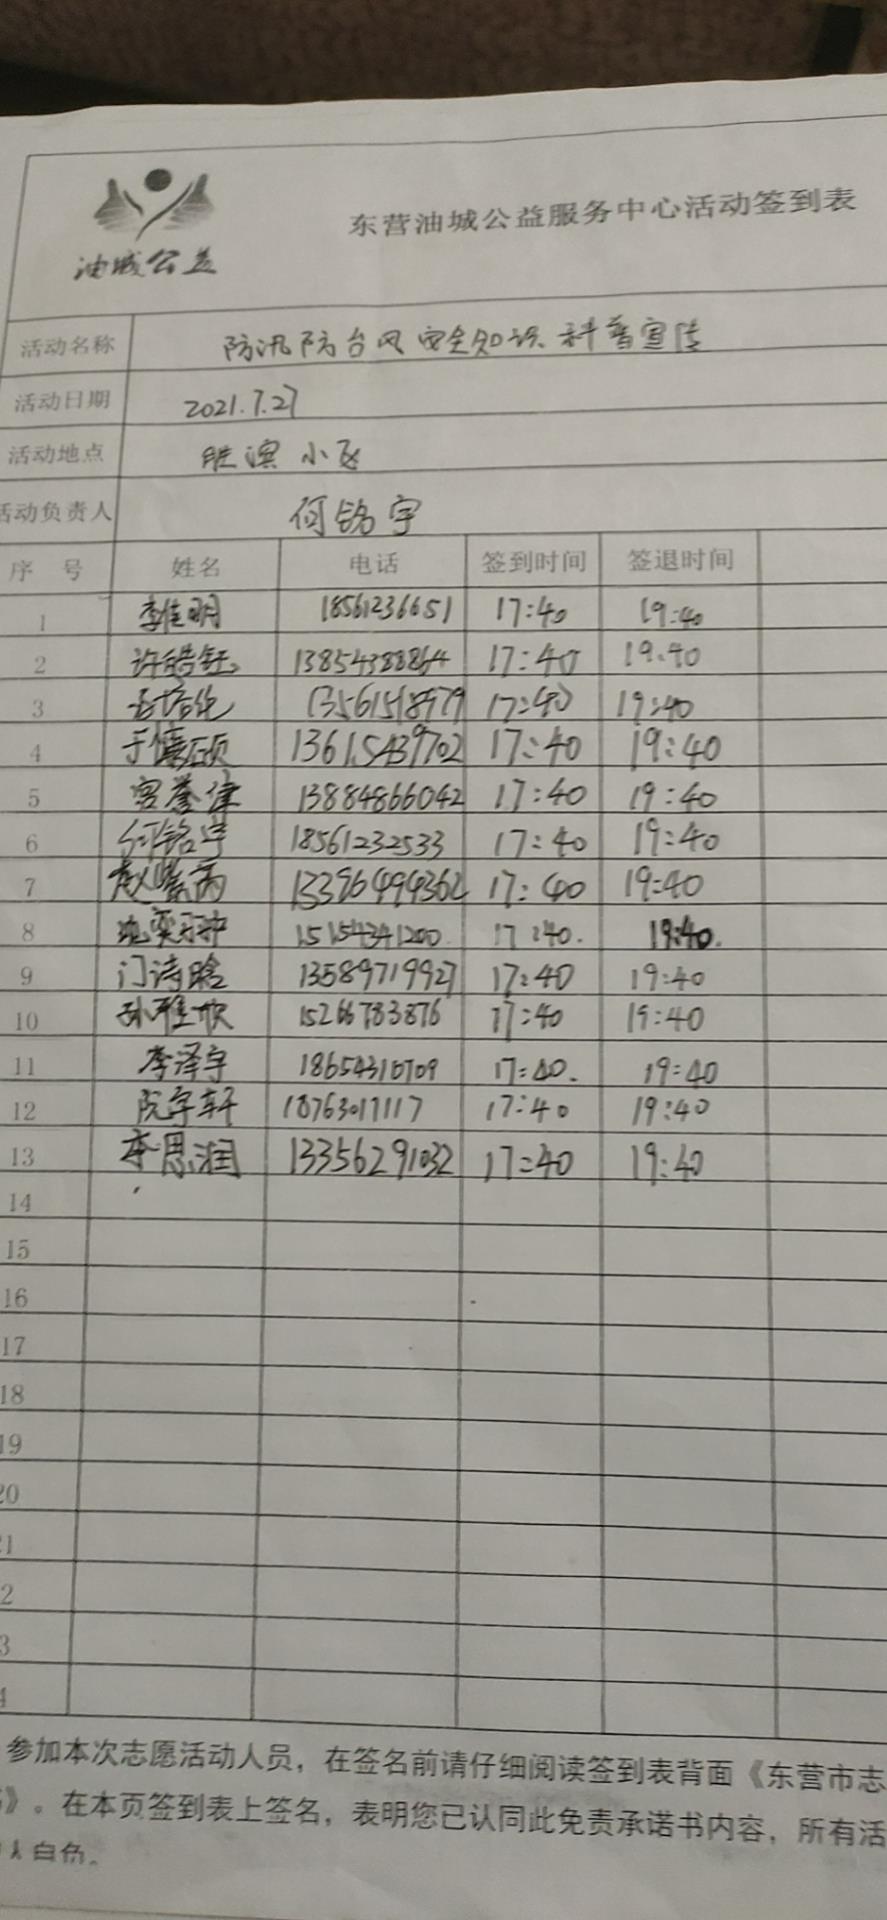 油城公益
东营油城公益服务中心活动签到表
活动名称 防汛防台风安全知识科普宣传
活动日期 2021.7.27
活动地点 胜滨小区
活动负责人 何铭宇
序 号 姓名 电话 签到时间 签退时间
1 李佳明 18561236651 17:40 19:40
2 许皓钰 13854388864 17:40 19:40
3 17:40 19:40
4 于儀硕 13615439702 17:40 19:40
5 13884866042 17:40 19:40
6 何铭宇 18561232533 17:40 19:40
7 赵紫 13396494362 17:40 19:40
8 15154341200 17:40. 19:40.
9 门诗晗 13589719927 17:40 19:40
10 孙雅欣 15266783876 17:40 19:40
11 李泽宇 18654310709 17:40. 19:40
12 阮宇轩 18763017117 17:40 19:40
13 李思润 13356291032 17:40 19:40
14
15
16
17
18
19
20
1
2
3
4
参加本次志愿活动人员，在签名前请仔细阅读签到表背面《东营市志
》。在本页签到表上签名，表明您已认同此免责承诺书内容，所有活
人自负。